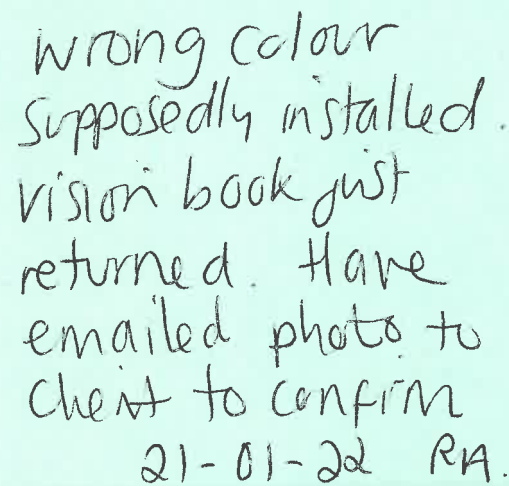 wrong colour
supposedly installed.
vision book just
returned. Have
emailed photo to
client to confirm
21-01-22 RA.